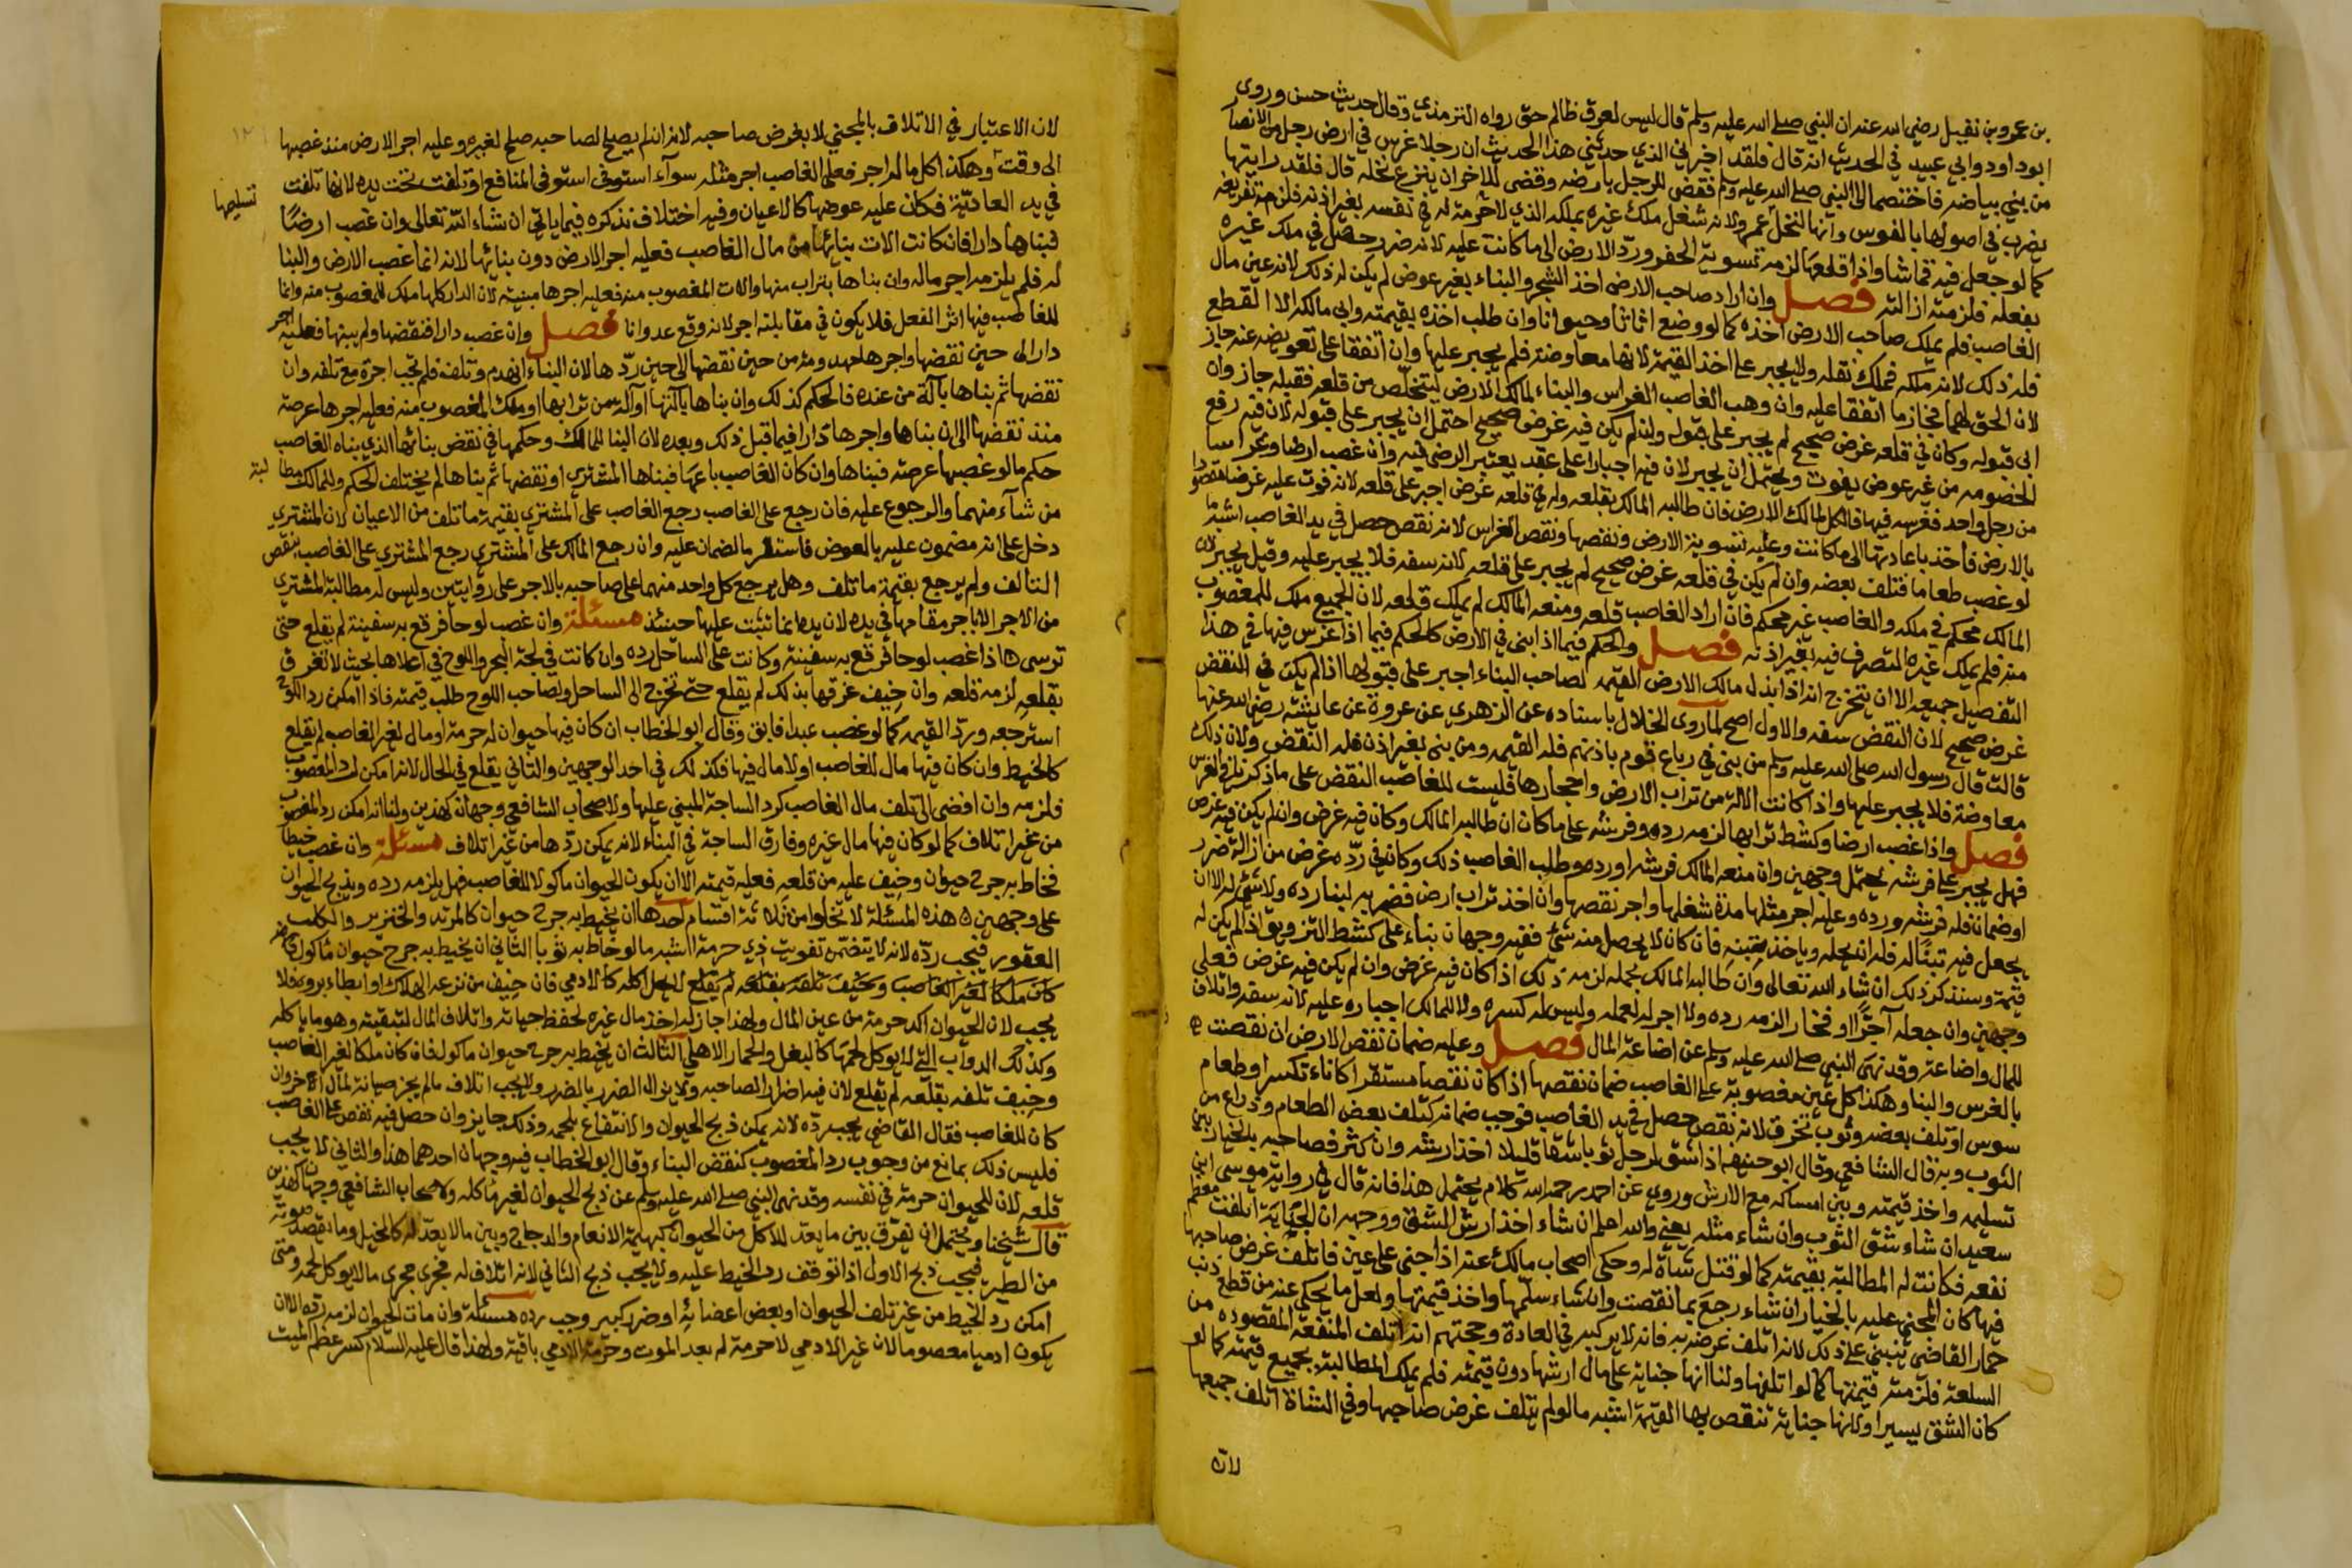 بن عمرو بن نفيل رضي الله عنه ان النبي صلى الله عليه وسلم قال ليس لعرق ظالم حق رواه الترمذي وقال حديث حسن وروى
ابو داود وابي عبيد في الحديث انه قال فلقد اخبرني الذي حدثني هذا الحديث ان رجلا غرس في ارض رجل من الانصار
من بني بياضه فاختصما الى النبي صلى الله عليه وسلم فقضى للرجل بارضه وقضى للاخر ان ينزع نخله قال فلقد رايتها
يضرب في اصولها بالفوس وانها لنخل عم ولانه شغل ملك غيره بملكه الذي لا حرمة له في نفسه بغير اذنه فلزمه تفريغه
كما لو جعل فيه قماشا واذا قلعها لزمه تسوية الحفر ورد الارض الى ما كانت عليه لانه ضرر حصل في ملك غيره
بفعله فلزمته ازالته فصل وان اراد صاحب الارض اخذ الشجر والبناء بغير عوض لم يكن له ذلك لانه عين مال
الغاصب فلم يملك صاحب الارض اخذه كما لو وضع اثاثا وحيوانا وان طلب اخذه بقيمته وابى مالكه الا القطع
فله ذلك لانه ملكه فملك نقله ولا يجبر على اخذ القيمة لانها معاوضة فلم يجبر عليها وان اتفقا على تعويضه عنه جاز
لان الحق لهما فجاز ما اتفقا عليه وان وهب الغاصب الغراس والبناء لمالك الارض ليتخلص من قلعه فقبله جاز وان
ابى قبوله وكان في قلعه غرض صحيح لم يجبر على قبوله وان لم يكن فيه غرض صحيح احتمل ان يجبر على قبوله لان فيه رفع
الخصومه من غير عوض يفوت ويحتمل ان لا يجبر لان فيه اجبارا على عقد يعتبر الرضى فيه وان غصب ارضا وغراسا
من رجل واحد فغرسه فيها فالكل لمالك الارض فان طالبه المالك بقلعه وله في قلعه غرض اجبر على قلعه لانه فوت عليه غرضا مقصودا
بالارض فاخذ باعادتها الى ما كانت وعليه تسوية الارض ونقصها ونقص الغراس لانه نقص حصل في يد الغاصب اشبه ما
لو غصب طعاما فتلف بعضه وان لم يكن في قلعه غرض صحيح لم يجبر على قلعه لانه سفه فلا يجبر عليه وقيل يجبر لان
المالك محكم في ملكه والغاصب غير محكم فان اراد الغاصب قلعه ومنعه المالك لم يملك قلعه لان الجميع ملك للمغصوب
منه فلم يملك غيره التصرف فيه بغير اذنه فصل والحكم فيما اذا بنى في الارض كالحكم فيما اذا غرس فيها في هذا
التفصيل جميعه الا ان يتخرج انه اذا بذل مالك الارض القيمه لصاحب البناء اجبر على قبولها اذا لم يكن في النقض
غرض صحيح لان النقض سفه والاول اصح لما روى الخلال باسناده عن الزهري عن عروة عن عايشة رضي الله عنها
قالت قال رسول الله صلى الله عليه وسلم من بنى في رباع قوم باذنهم فله القيمه ومن بنى بغير اذن فله النقض ولان ذلك
معاوضة فلا يجبر عليها واذا كانت الالة من تراب الارض واحجارها فليست للغاصب النقض على ما ذكرناه في الغرس
فصل واذا غصب ارضا وكشط ترابها لزمه رده وفرشه على ما كان ان طالبه المالك وكان فيه غرض وان لم يكن فيه غرض
فهل يجبر على فرشه يحتمل وجهين وان منعه المالك فرشه او رده وطلب الغاصب ذلك وكان في رده غرض من ازالة ضرر
او ضمان فله فرشه ورده وعليه اجر مثلها مدة شغلها واجر نقصها وان اخذ تراب ارض فضربه لبنا رده ولا شي له الا ان
يجعل فيه تبنا له فله ان يحله وياخذ تبنه فان كان لا يحصل منه شي ففيه وجهان بناء على كشط التزويق اذا لم يكن له
قيمة وسنذكر ذلك ان شاء الله تعالى وان طالبه المالك بحله لزمه ذلك اذا كان فيه غرض وان لم يكن فيه غرض فعلى
وجهين وان جعله آجرا او فخارا لزمه رده ولا اجر له لعمله وليس له كسره ولا للمالك اجباره عليه لانه سفه واتلاف
للمال واضاعة وقد نهى النبي صلى الله عليه وسلم عن اضاعة المال فصل وعليه ضمان نقص الارض ان نقصت
بالغرس والبنا وهكذا كل عين مغصوبة على الغاصب ضمان نقصها اذا كان نقصا مستقرا كاناء تكسر او طعام
سوس او تلف بعضه وثوب تخرق لانه نقص حصل في يد الغاصب فوجب ضمانه كتلف بعض الطعام وذراع من
الثوب وبه قال الشافعي وقال ابو حنيفه اذا شق لرجل ثوبا شقا قليلا اخذ ارشه وان كثر فصاحبه بالخيار بين
تسليمه واخذ قيمته وبين امساكه مع الارش وروي عن احمد رحمه الله كلام يحتمل هذا فانه قال في رواية موسى ابن
سعيد ان شاء شق الثوب وان شاء مثله يعني والله اعلم ان شاء اخذ ارش الشق ووجهه ان الجناية اتلفت معظم
نفعه فكانت له المطالبة بقيمته كما لو قتل شاة له وحكى اصحاب مالك عنه اذا جنى على عين فاتلف غرض صاحبها
فيها كان المجني عليه بالخيار ان شاء رجع بما نقصت وان شاء سلمها واخذ قيمتها ولعل ما يحكى عنه من قطع ذنب
حمار القاضي ينبني على ذلك لانه اتلف غرضه به فانه لا يركبه في العادة وحجتهم انه اتلف المنفعة المقصوده من
السلعة فلزمته قيمتها كما لو اتلفها ولنا انها جناية على مال ارشها دون قيمته فلم يملك المطالبة بجميع قيمته كما لو
كان الشق يسيرا ولانها جناية تنقص بها القيمة اشبه ما لو لم يتلف غرض صاحبها وفي الشاة اتلف جميعها
لان
لان الاعتبار في الاتلاف بالمجني لا بغرض صاحبه لانه ان لم يصلح لصاحبه صلح لغيره وعليه اجر الارض منذ غصبها
الى وقت وهكذا كل ما له اجر فعلى الغاصب اجر مثله سوآء استوفى المنافع او تلفت تحت يده لانها تلفت
تسليمها
في يده العادية فكان عليه عوضها كالاعيان وفيه اختلاف نذكره فيما ياتي ان شاء الله تعالى وان غصب ارضا
فبناها دارا فان كانت الات بنائها من مال الغاصب فعليه اجر الارض دون بنائها لانه انما غصب الارض والبنا
له فلم يلزمه اجر ماله وان بناها بتراب منها والات المغصوب منه فعليه اجرها مبنية لان الدار كلها ملك للمغصوب منه وانما
للغاصب فيها اثر الفعل فلا يكون في مقابلته اجر لانه وقع عدوانا فصل وان غصب دارا فنقضها ولم يبنها فعليه اجر
دار الى حين نقضها واجرها مهدومة من حين نقضها الى حين ردها لان البناء انهدم وتلف فلم تجب اجرة مع تلفه وان
نقضها ثم بناها بآلة من عنده فالحكم كذلك وان بناها بآلتها او آلة من ترابها او ملك المغصوب منه فعليه اجرها عرصة
منذ نقضها الى ان بناها واجرها دارا فيما قبل ذلك وبعده لان البنا للمالك وحكمها في نقض بنائها الذي بناه الغاصب
حكم ما لو غصبها عرصة فبناها وان كان الغاصب باعها فبناها المشتري او نقضها ثم بناها لم يختلف الحكم وللمالك مطالبة
من شآء منهما والرجوع عليه فان رجع على الغاصب رجع الغاصب على المشتري بقيمة ما تلف من الاعيان لان المشتري
دخل على انه مضمون عليه بالعوض فاستقر ما لضمان عليه وان رجع المالك على المشتري رجع المشتري على الغاصب بنقص
التالف ولم يرجع بقيمة ما تلف وهل يرجع كل واحد منهما على صاحبه بالاجر على روايتين وليس له مطالبة المشتري
من الاجر الا باجر مقامها في يده لان يده انما ثبتت عليها حينئذ مسئلة وان غصب لوحا فرقع به سفينة لم يقلع حتى
ترسى ه اذا غصب لوحا فرقع به سفينة وكانت على الساحل رده وان كانت في لجة البحر واللوح في اعلاها بحيث لا تغرق
بقلعه لزمه قلعه وان خيف غرقها بذلك لم يقلع حتى تخرج الى الساحل ولصاحب اللوح طلب قيمته فاذا امكن رد اللوح
استرجعه ورد القيمه كما لو غصب عبدا فابق وقال ابو الخطاب ان كان فيها حيوان له حرمة او مال لغير الغاصب لم يقلع
كالخيط وان كان فيها مال للغاصب او لا مال فيها فكذلك في احد الوجهين والثاني يقلع في الحال لانه امكن رد المغصوب
فلزمه وان افضى الى تلف مال الغاصب كرد الساجة المبني عليها ولاصحاب الشافعي وجهان كهذين ولنا انه امكن رد المغصوب
من غير اتلاف كما لو كان فيها مال غيره وفارق الساجة في البناء لانه يمكن ردها من غير اتلاف مسئلة وان غصب خيطا
فخاط به جرح حيوان وخيف عليه من قلعه فعليه قيمته الا ان يكون الحيوان ماكولا للغاصب فهل يلزمه رده ويذبح الحيوان
على وجهين ه هذه المسئلة لا تخلوا من ثلاثة اقسام احدها ان يخيط به جرح حيوان كالمرتد والخنزير والكلب
العقور فيجب رده لانه لا يتضمن تفويت ذي حرمة اشبه ما لو خاط به ثوبا الثاني ان يخيط به جرح حيوان ماكول
كان ملكا لغير الغاصب وخيف تلفه بقلعه لم يقلع كالادمي فان خيف من نزعه الهلاك او ابطاء بروه فلا
يجب لان الحيوان اكد حرمة من عين المال ولهذا جاز له اخذ مال غيره لحفظ حياته واتلاف المال لتبقيته وهو ما ياكله
وكذلك الدواب التي لا يوكل لحمها كالبغل والحمار الاهلي الثالث ان يخيط به جرح حيوان ماكول فان كان ملكا لغير الغاصب
وخيف تلفه بقلعه لم يقلع لان فيه اضرارا لصاحبه ولا يزال الضرر بالضرر ولا يجب اتلاف مال من لم يجن صيانة لمال اخر وان
كان للغاصب فقال القاضي يجب رده لانه يمكن ذبح الحيوان والانتفاع بلحمه وذلك جايز وان حصل فيه نقص على الغاصب
فليس ذلك بمانع من وجوب رد المغصوب كنقض البناء وقال ابو الخطاب فيه وجهان احدهما هذا والثاني لا يجب
قلعه لان للحيوان حرمة في نفسه وقد نهى النبي صلى الله عليه وسلم عن ذبح الحيوان لغير ماكله ولاصحاب الشافعي وجهان كهذين
قال شيخنا ويحتمل ان يفرق بين ما يعد للاكل من الحيوان كبهيمة الانعام والدجاج وبين ما لا يعد له كالخيل وما يقصد صوته
من الطير فيجب ذبح الاول اذا توقف رد الخيط عليه ولا يجب ذبح الثاني لانه اتلاف له فجرى مجرى ما لا يوكل لحمه ومتى
امكن رد الخيط من غير تلف الحيوان او بعض اعضائه او ضرر كبير وجب رده مسئلة وان مات الحيوان لزمه رده الا ان
يكون ادميا معصوما لان غير الادمي لا حرمة له بعد الموت وحرمة الادمي باقية ولهذا قال عليه السلام كسر عظم الميت